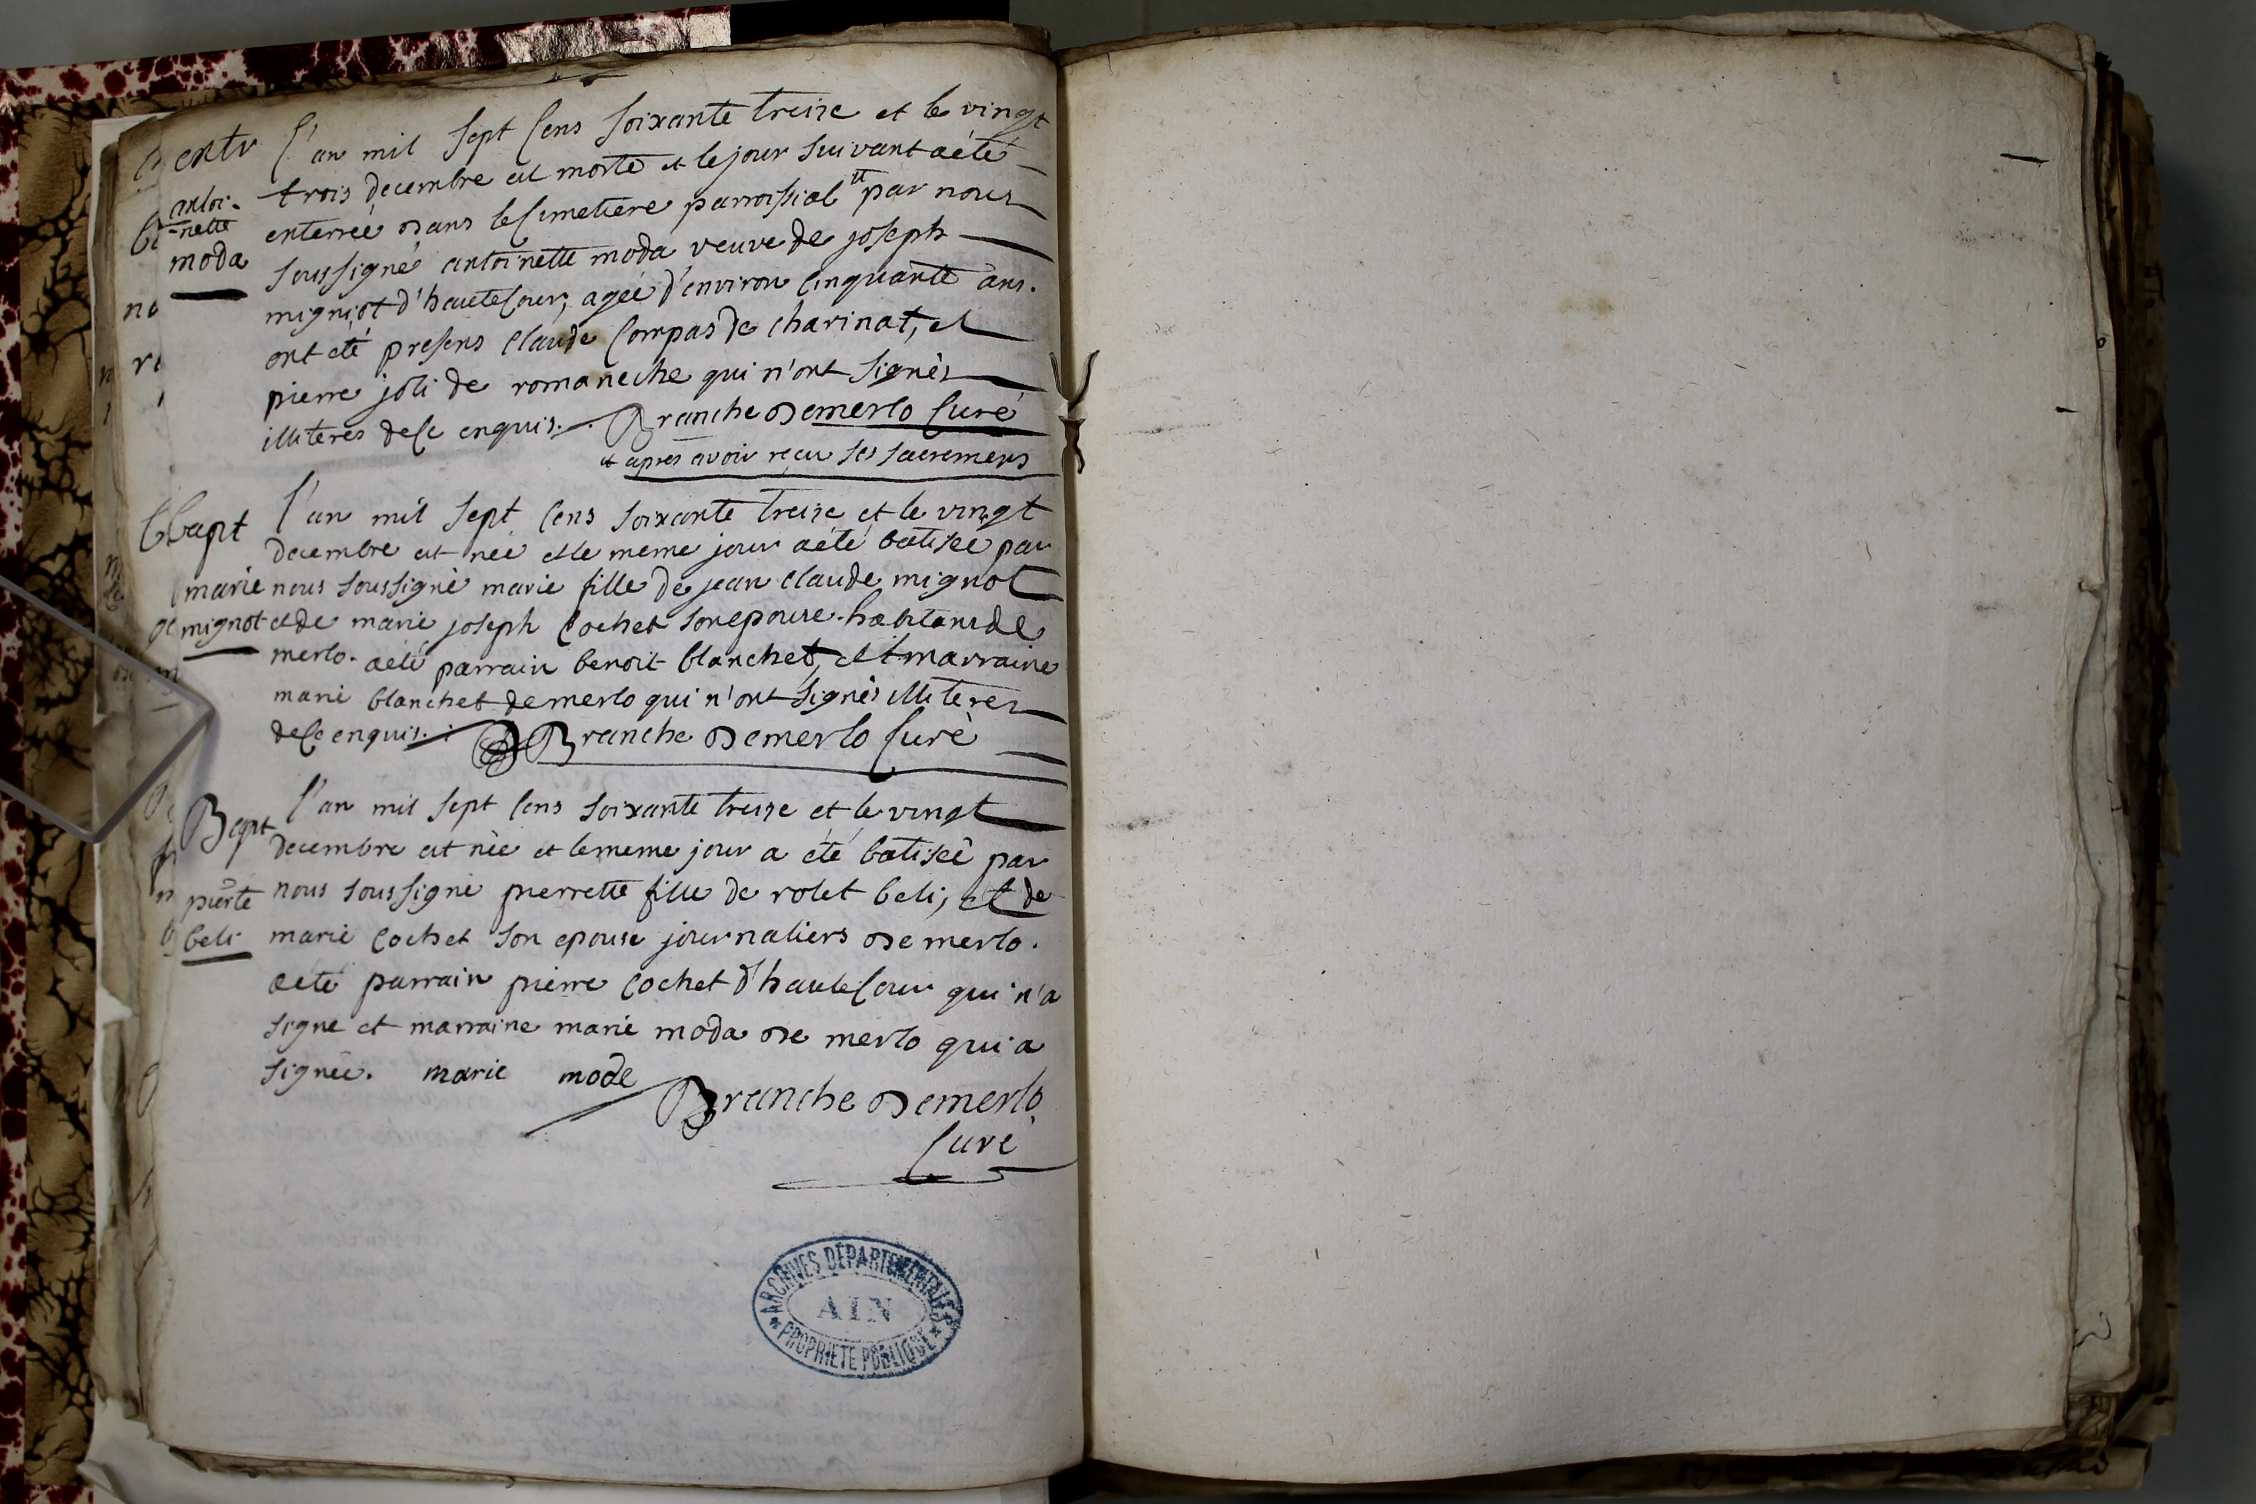 entr
antoi-
-nette
moda
l'an mil sept cens soixante treize et le vingt
trois decembre est morte et le jour suivant aété
enterrée dans le cimetiere parroissial tt par nous
soussigné antoinette moda veuve de joseph
migniot d'hautecour, agée d'environ cinquante ans.
ont eté presens claude compas de charinat, et
pierre joli de romaneche qui n'ont signés
illiteres dece enquis. Branche Demerlo curé
tt apres avoir reçu ses sacremens
Bapt
marie
mignot
l'an mil sept cens soixante treize et le vingt
decembre est née et le meme jour aété batisée par
nous soussigné marie fille de jean claude mignot
et de marie joseph cochet son epouse habitans de
merlo. aeté parrain benoit blanchet, et marraine
marie blanchet de merlo qui n'ont signés illiteres
dece enquis. Branche Demerlo curé
Bapt
pierrte
beli
l'an mil sept cens soixante treize et le vingt
decembre est née et le meme jour a été batisée par
nous soussigné pierrette fille de rolet beli, et de
marie cochet son epouse journaliers de merlo.
aeté parrain pierre cochet d'hautecour qui n'a
signé et marraine marie moda de merlo qui a
signée. marie mode
Branche Demerlo
curé
ARCHIVES DÉPARTEMENTALES
AIN
* PROPRIÉTÉ PUBLIQUE *